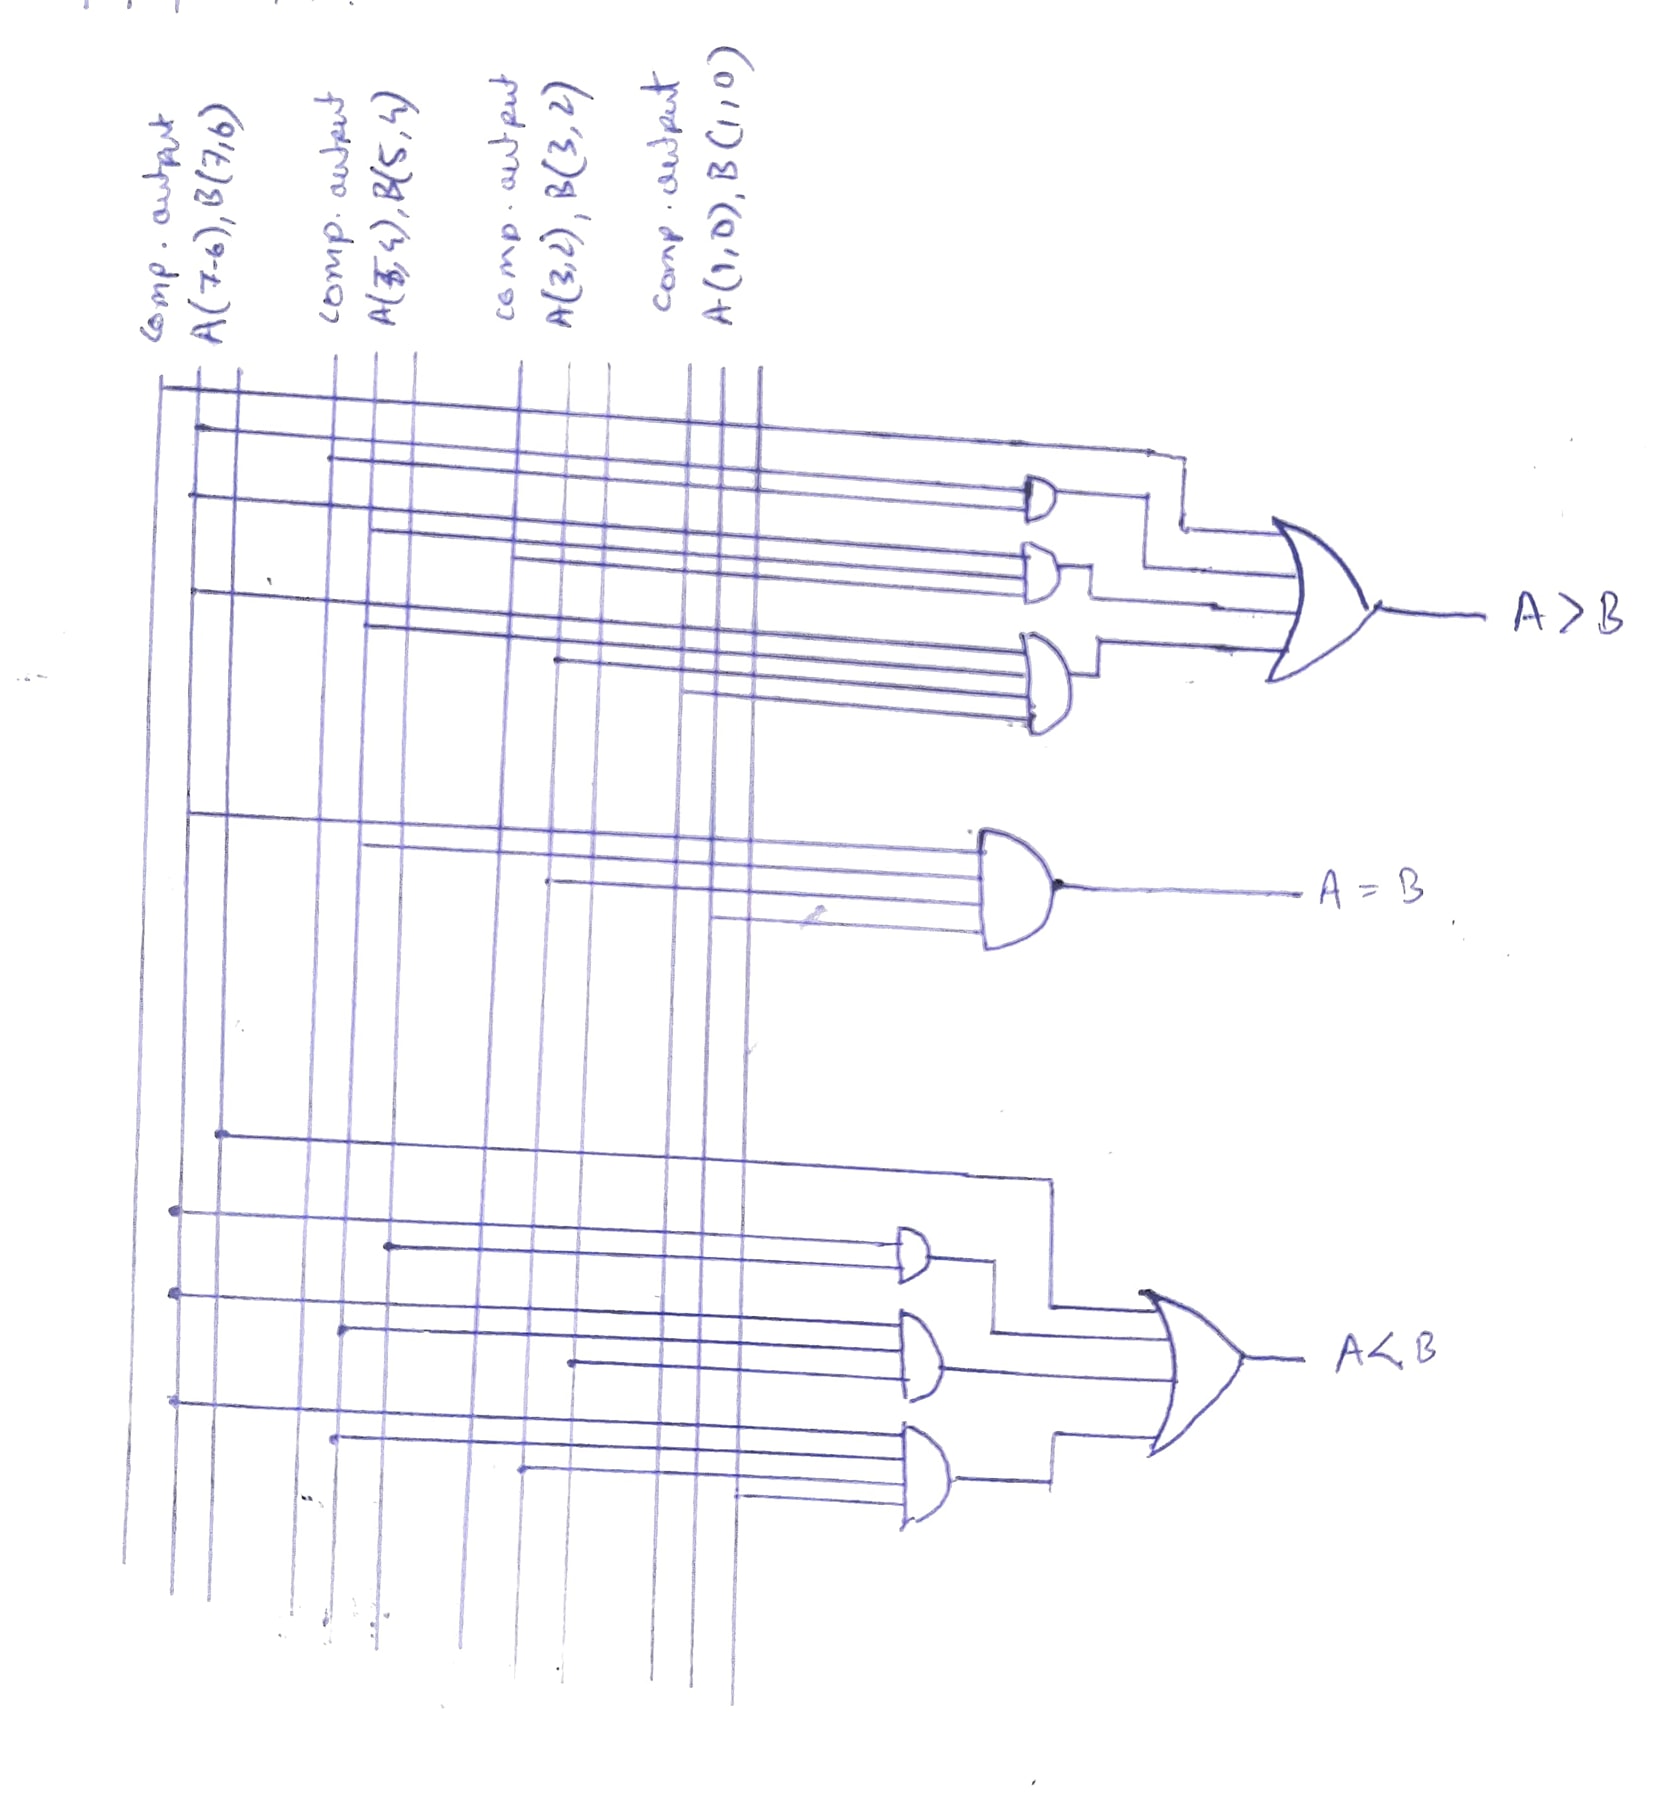 Comp. output
A(7-6), B(7,6)
Comp. output
A(5,4), B(5,4)
Comp. output
A(3,2), B(3,2)
Comp. output
A(1,0), B(1,0)
A > B
A = B
A < B